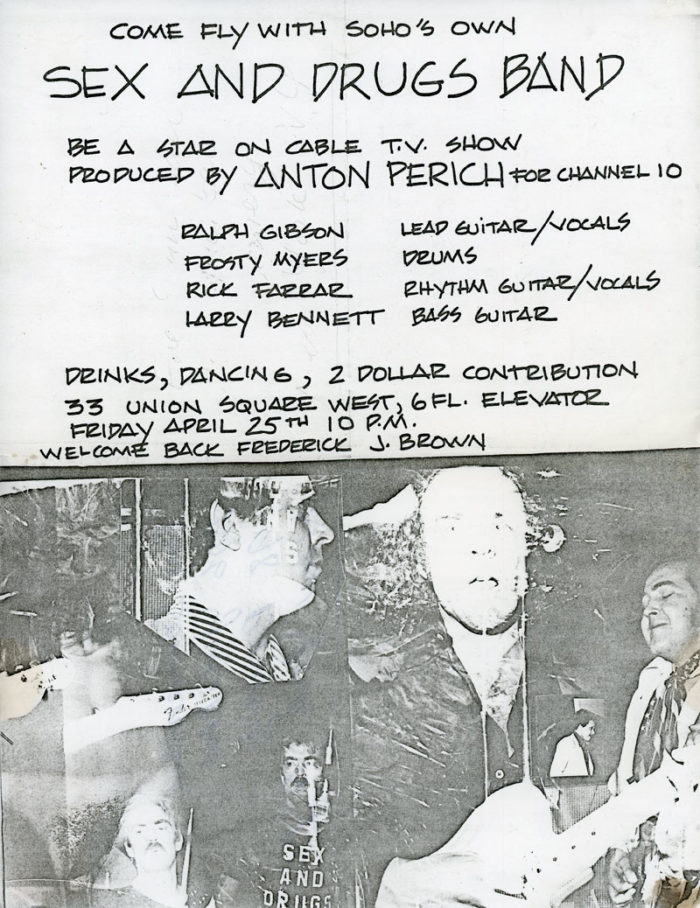 COME FLY WITH SOHO'S OWN
SEX AND DRUGS BAND
BE A STAR ON CABLE T.V. SHOW
PRODUCED BY ANTON PERICH FOR CHANNEL 10
RALPH GIBSON LEAD GUITAR/VOCALS
FROSTY MYERS DRUMS
RICK FARRAR RHYTHM GUITAR/VOCALS
LARRY BENNETT BASS GUITAR
DRINKS, DANCING, 2 DOLLAR CONTRIBUTION
33 UNION SQUARE WEST, 6 FL. ELEVATOR
FRIDAY APRIL 25TH 10 P.M.
WELCOME BACK FREDERICK J. BROWN
Fender
SEX
AND
DRUGS